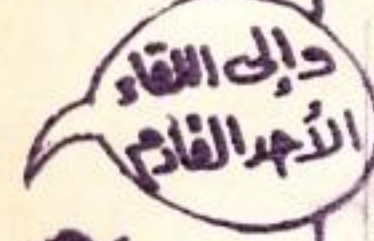 وإلى اللقاء
الأحد القادم